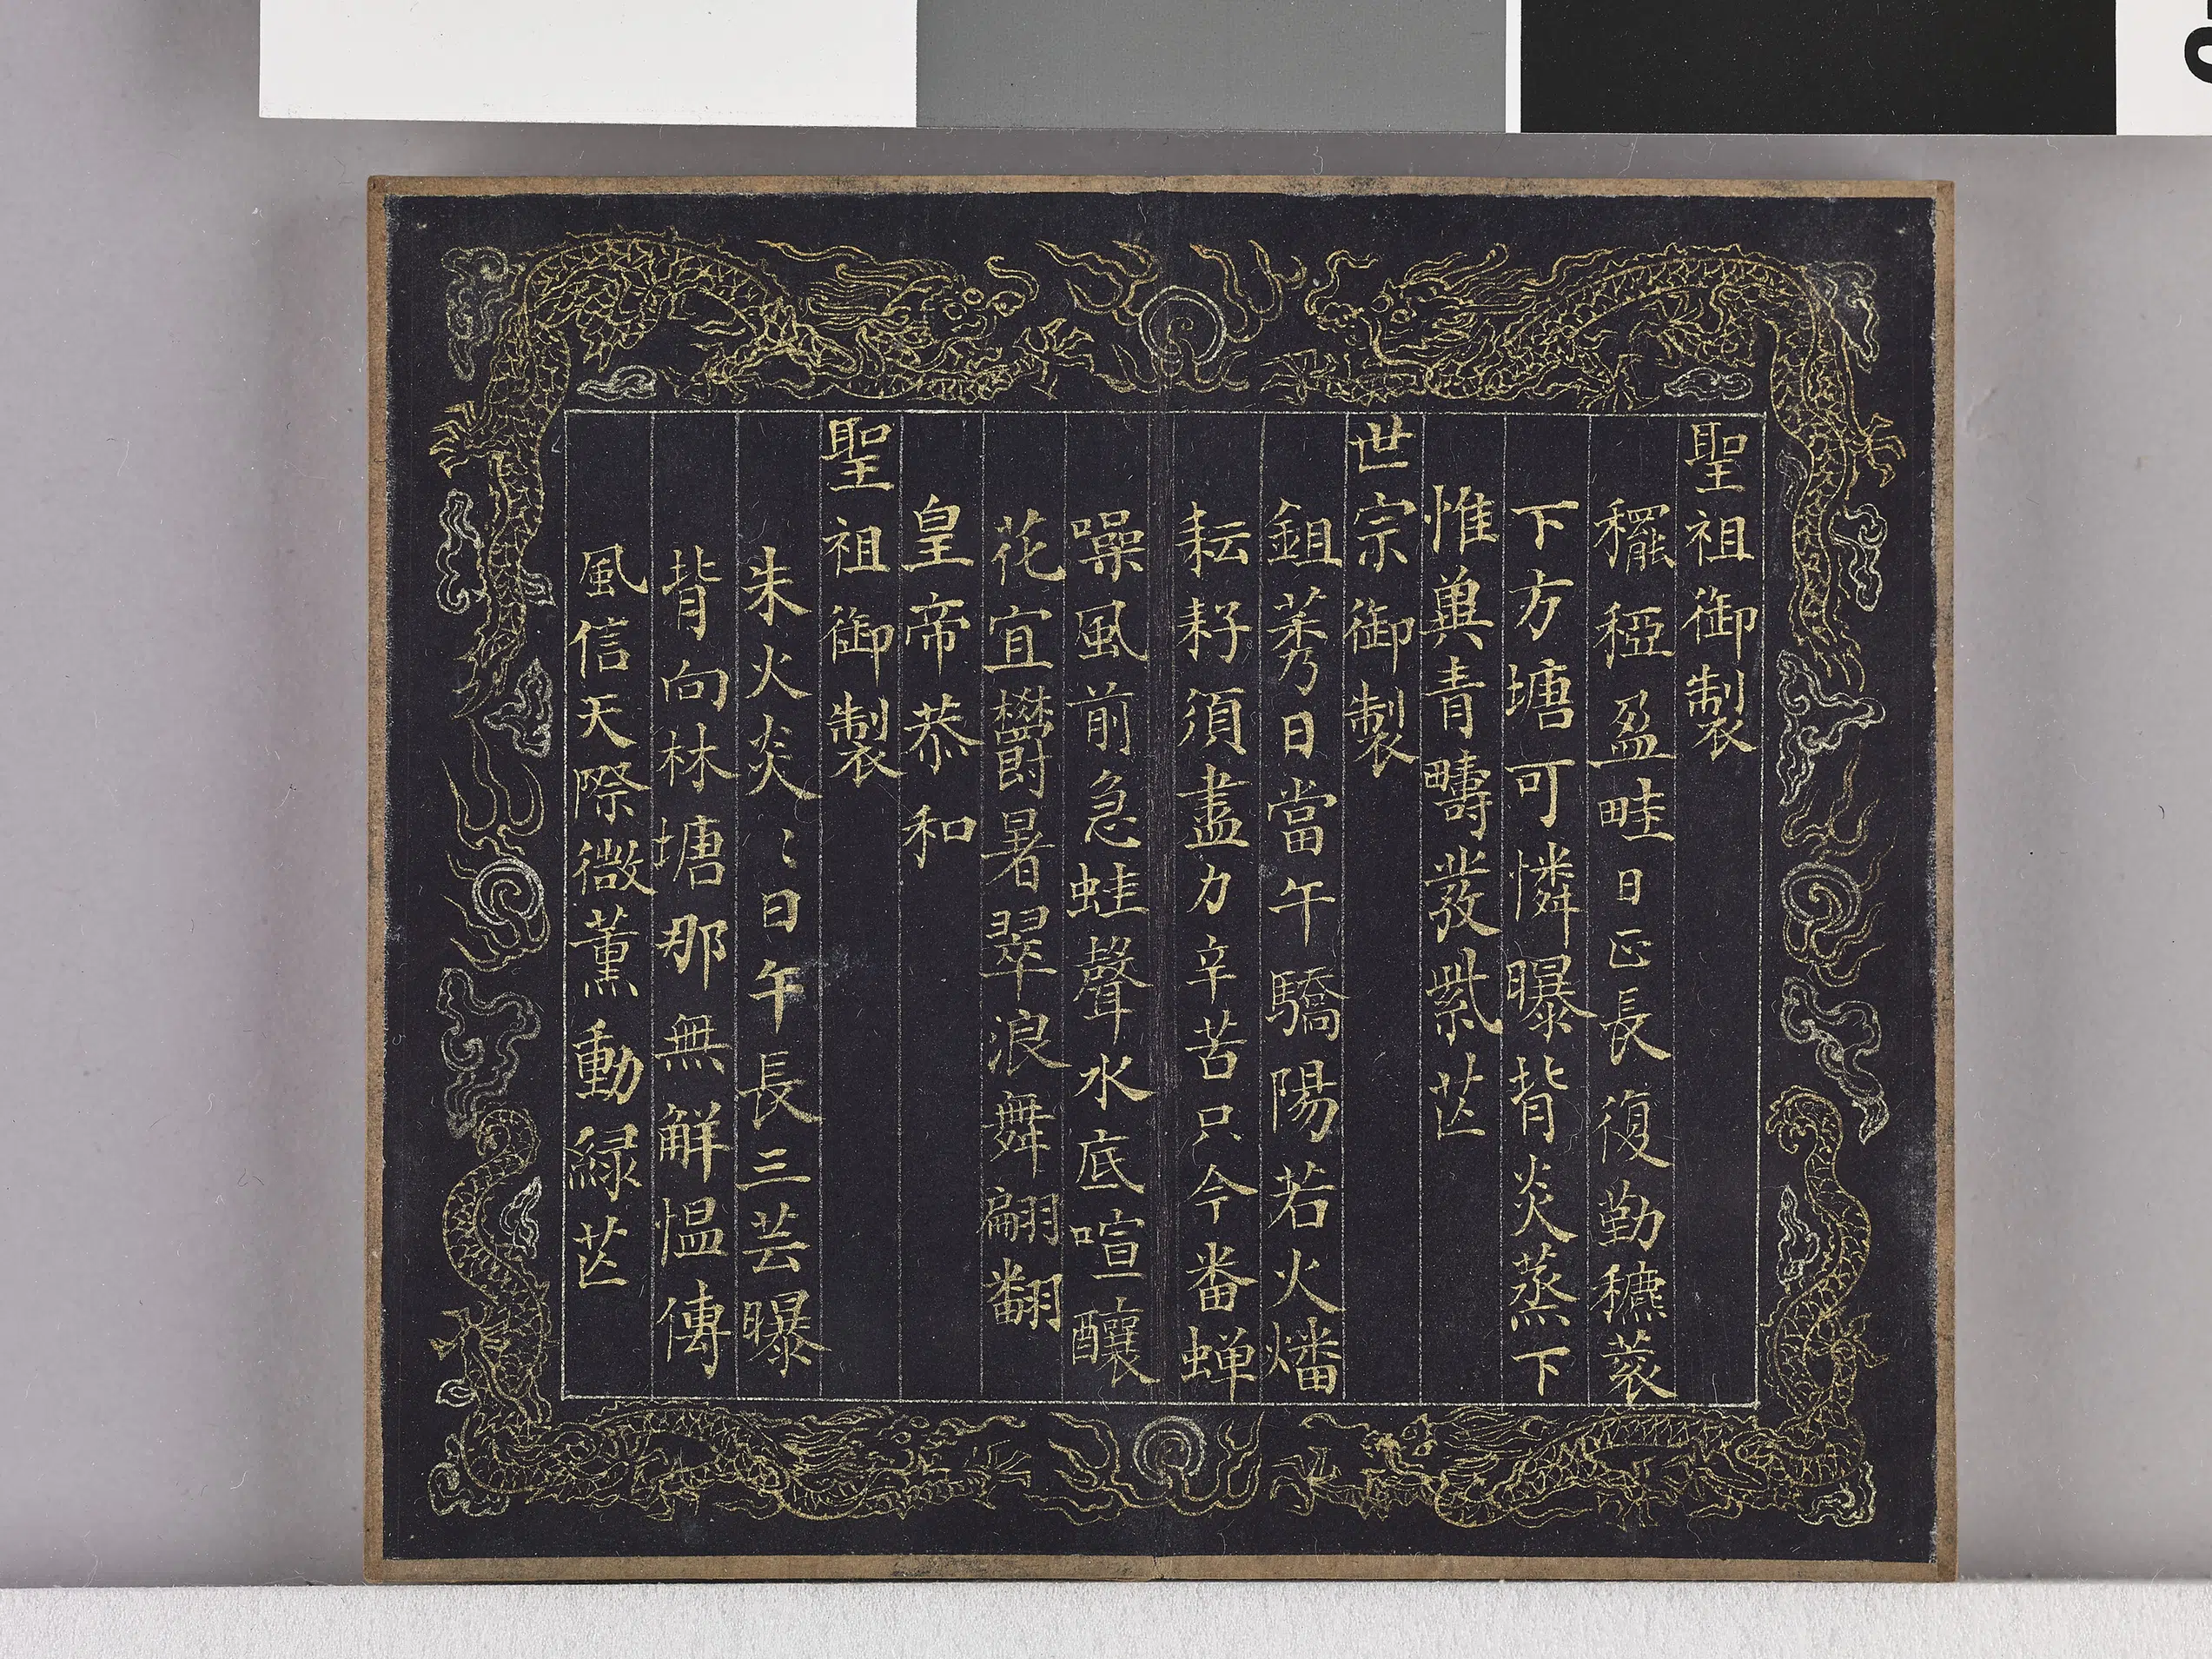 聖祖御製
穲稏盈畦日正長復勤穮蔉
下方塘可憐曝背炎蒸下
惟兾青疇發紫芒
世宗御製
鉏莠日當午驕陽若火燔
耘耔須盡力辛苦只今番蟬
噪風前急蛙聲水底喧釀
花宜欝暑翠浪舞翩翻
皇帝恭和
聖祖御製
朱火炎〻日午長三芸曝
背向林塘那無解慍傳
風信天際微薰動緑芒